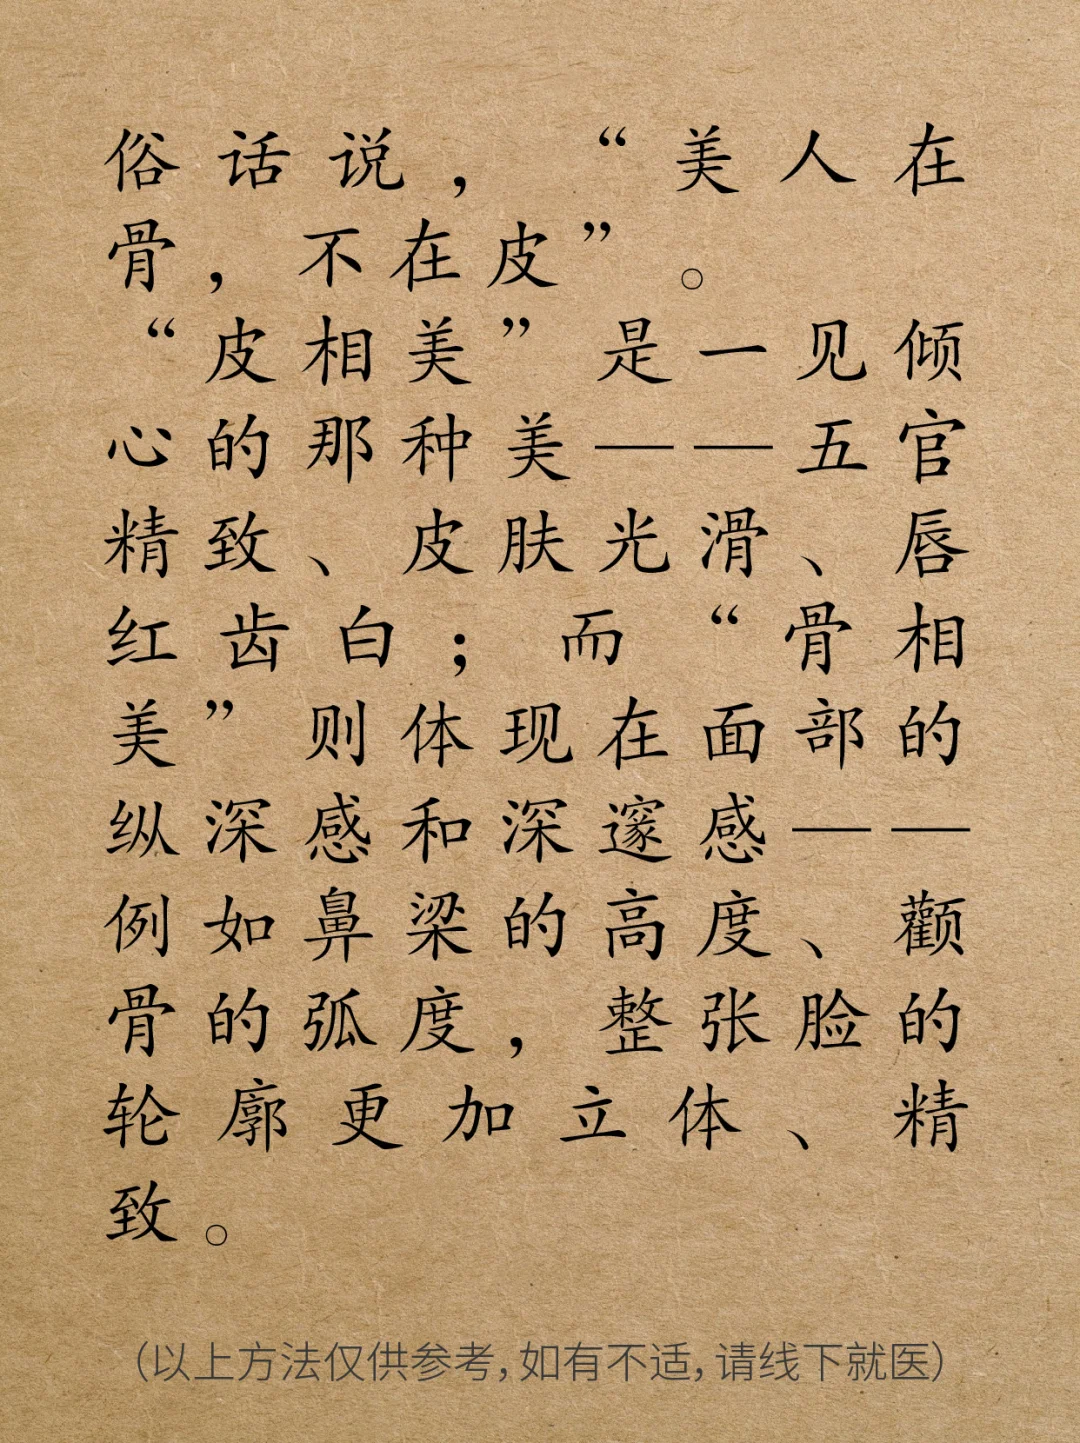 俗话说，“美人在
骨，不在皮”。
“皮相美”是一见倾
心的那种美——五官
精致、皮肤光滑、唇
红齿白；而“骨相
美”则体现在面部的
纵深感和深邃感——
例如鼻梁的高度、颧
骨的弧度，整张脸的
轮廓更加立体、精
致。
（以上方法仅供参考，如有不适，请线下就医）